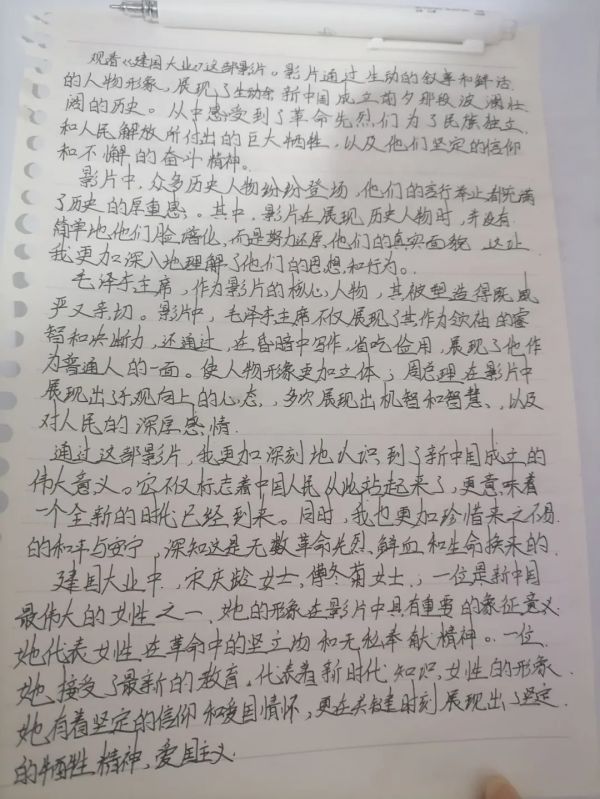 观看《建国大业》这部影片。影片通过生动的叙事和鲜活
的人物形象，展现了生动余新中国成立前夕那段波澜壮
阔的历史。从中感受到了革命先烈们为了民族独立
和人民解放所付出的巨大牺牲，以及他们坚定的信仰
和不懈的奋斗精神。
影片中，众多历史人物纷纷登场，他们的言行举止都充满
了历史的厚重感。其中，影片在展现历史人物时，并没有
简单地他们脸谱化，而是努力还原他们的真实面貌 这让
我更加深入地理解了他们的思想和行为。
毛泽东主席，作为影片的核心人物，其被塑造得既威
严又亲切。影片中，毛泽东主席不仅展现了其作为领袖的睿
智和决断力，还通过，在昏暗中写作，省吃俭用，展现了他作
为普通人的一面。使人物形象更加立体；周总理在影片中
展现出了乐观向上的心态，多次展现出机智和智慧、以及
对人民的深厚感情
通过这部影片，我更加深刻地认识到了新中国成立的
伟大意义。它不仅标志着中国人民从此站起来了，更意味着
一个全新的时代已经到来。同时，我也更加珍惜来之不易
的和平与安宁，深知这是无数革命先烈、鲜血和生命换来的
建国大业中，宋庆龄女士，傅冬菊女士，；一位是新中国
最伟大的女性之一、她的形象在影片中具有重要的象征意义
她代表女性在革命中的坚立场和无私奉献精神。一位
她接受了最新的教育，代表着新时代知识女性的形象
她有着坚定的信仰和爱国情怀，更在关键时刻展现出了坚定
的牺牲精神、爱国主义